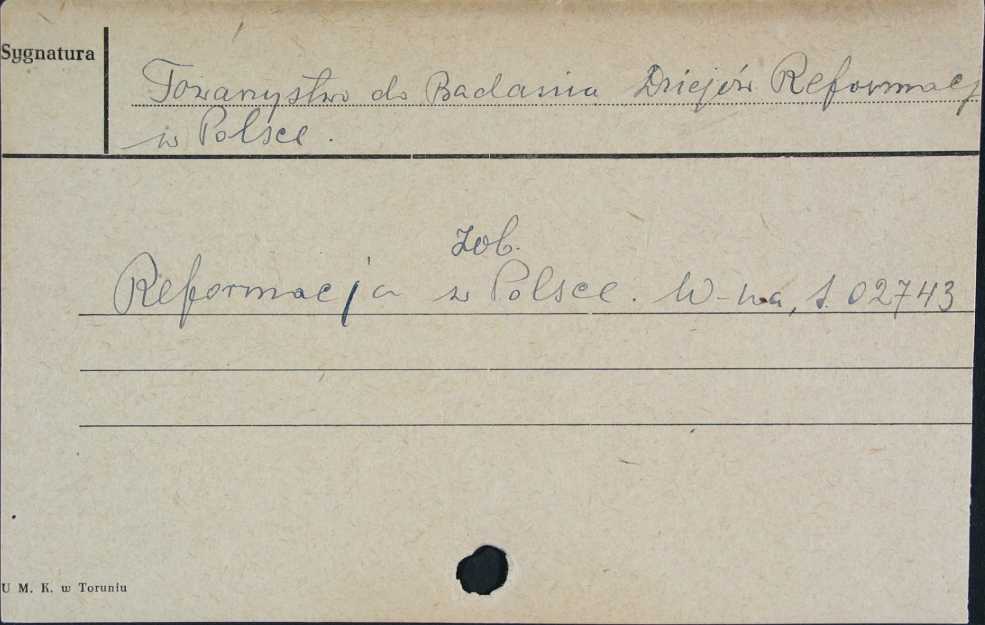 Sygnatura
Towarzystwo do Badania Dziejów Reformacj
w Polsce.
Zob.
Reformacja w Polsce. W-wa, s. 02743
U M. K. w Toruniu